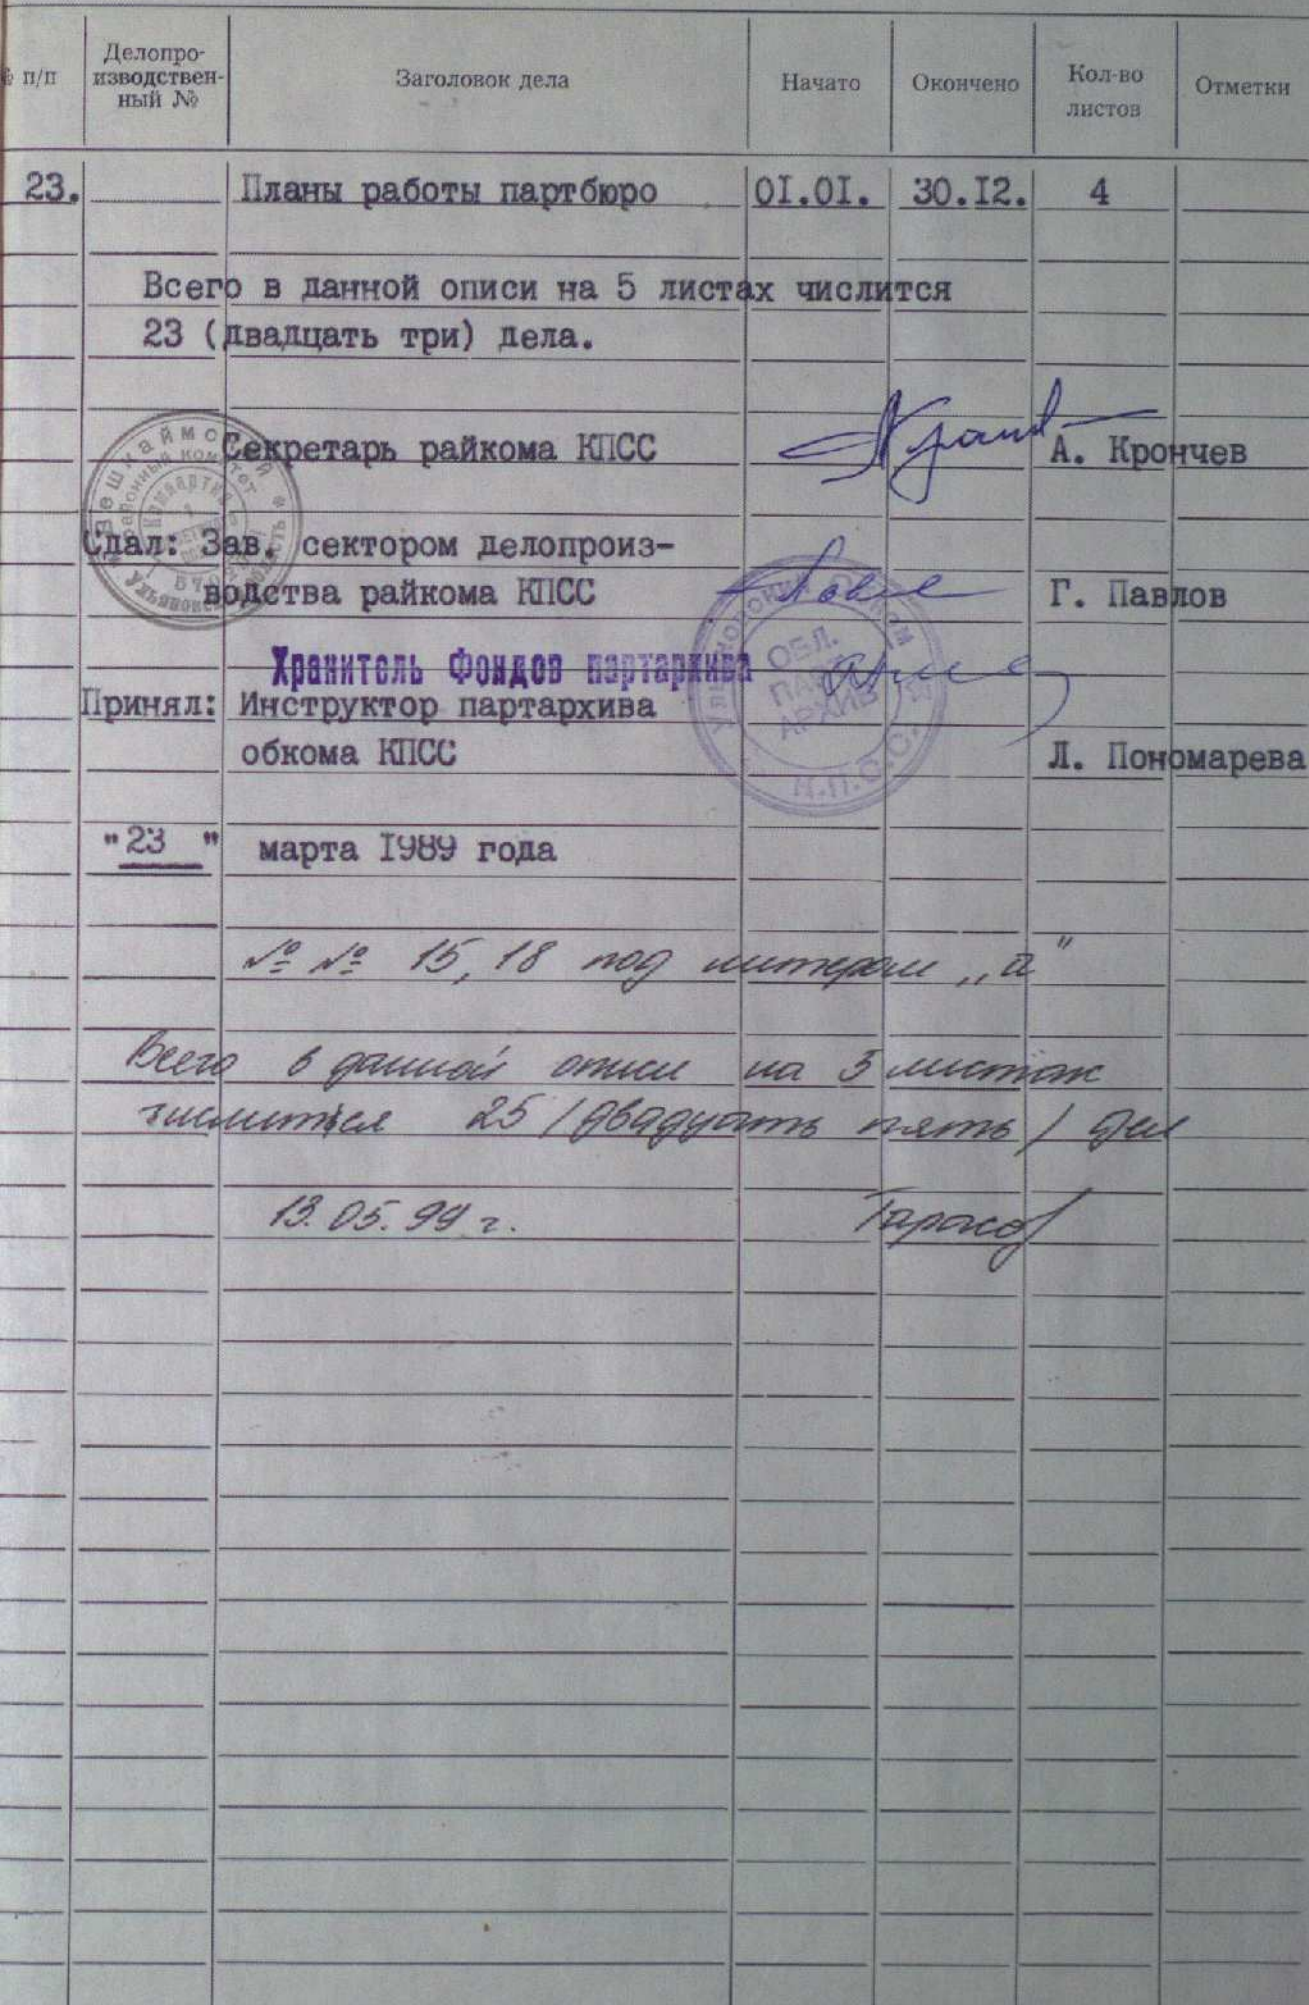 № п/п
Делопро-
изводствен-
ный №
Заголовок дела
Начато
Окончено
Кол-во
листов
Отметки
23. Планы работы партбюро 01.01. 30.12. 4
Всего в данной описи на 5 листах числится
23 (двадцать три) дела.
Секретарь райкома КПСС А. Крончев
Сдал: Зав. сектором делопроиз-
водства райкома КПСС Г. Павлов
Хранитель Фондов партархива
Принял: Инструктор партархива
обкома КПСС Л. Пономарева
"23" марта 1989 года
№ № 15, 18 под литером „а"
Всего в данной описи на 3 листах
числится 25 /двадцать пять/ дел
13.05.99 г. Тарасов
ОБЛ.
ПАРТ
АРХИВ
К.П.С.С.